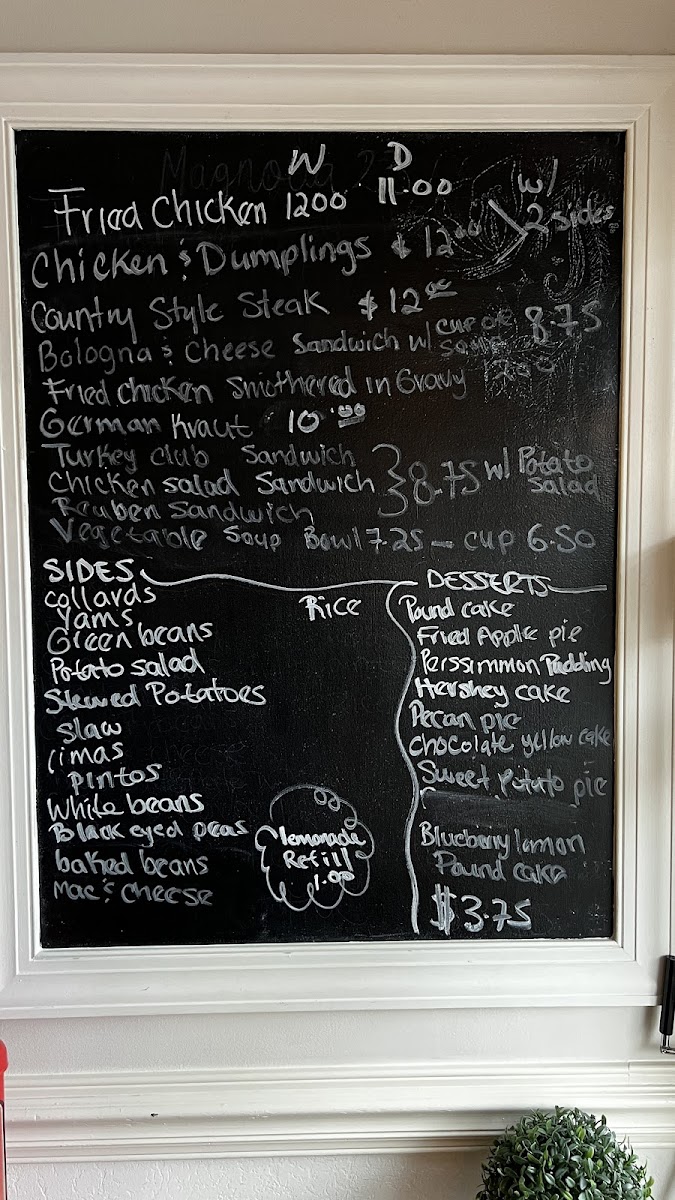 W D
Fried Chicken 1200 11.00 w/ 2 sides
Chicken & Dumplings $12.00
Country Style Steak $12.00
Bologna & Cheese Sandwich w/ cup of soup 8.75
Fried chicken Smothered in Gravy
German Kraut 10.00
Turkey club Sandwich
Chicken salad Sandwich 8.75 w/ Potato salad
Reuben Sandwich
Vegetable Soup Bowl 7.25 - cup 6.50
SIDES
collards
Yams
Green beans
Potato salad
Stewed Potatoes
slaw
limas
pintos
White beans
Black eyed peas
baked beans
Mac & cheese
Rice
lemonade
Refill
1.00
DESSERTS
Pound cake
Fried Apple pie
Perssimmon Pudding
Hershey cake
Pecan pie
chocolate yellow cake
Sweet Potato pie
Blueberry lemon
Pound cake
$3.75